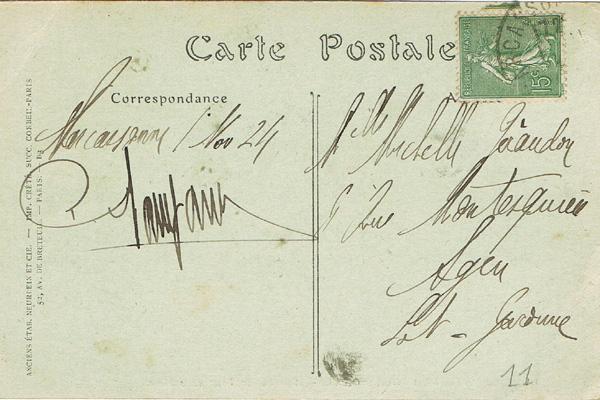 Carte Postale
Correspondance
Carcassonne 1 Nov 24
Mlle Michelle
Rue Montesquieu
Agen
Lt-Garonne
11
REPUBLIQUE FRANCAISE
15c
ANCIENS ÉTAB. NEURDEIN ET CIE. — IMP. CRÉTÉ, SUCC. CORBEIL-PARIS
52, AV. DE BRETEUIL — PARIS.